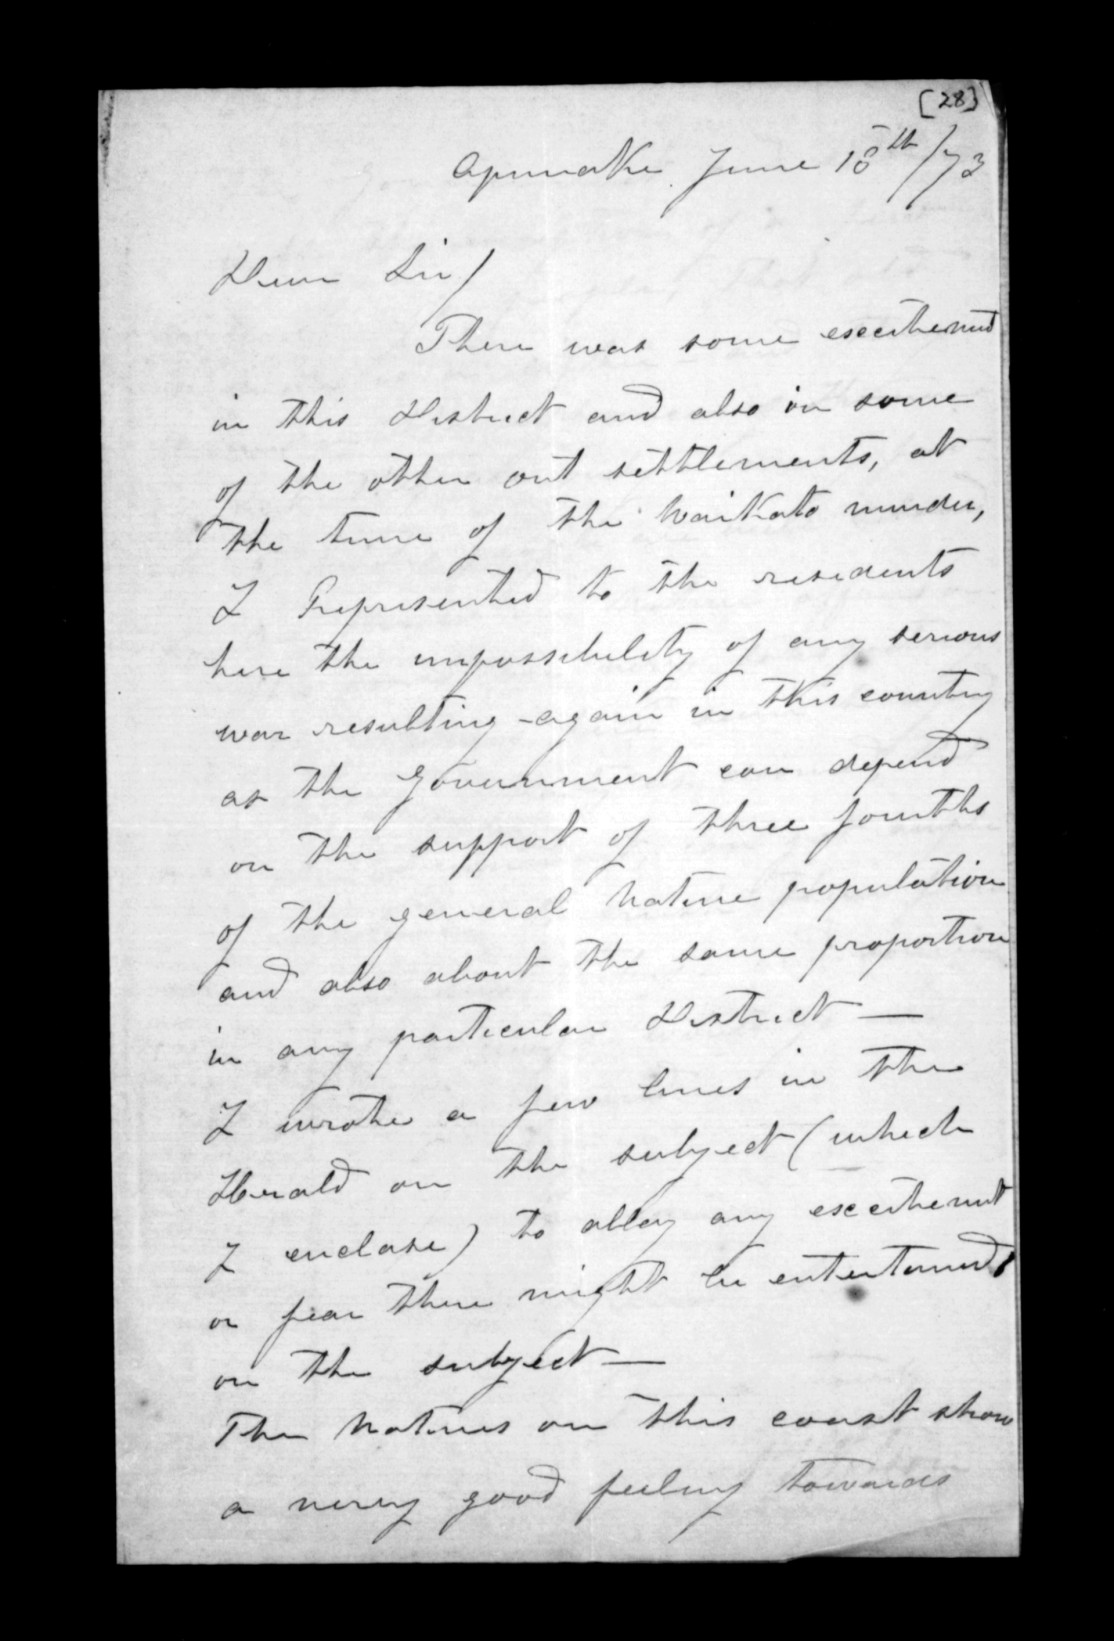 [28]
Opunake June 18th/73
Dear Sir/
There was some excitement
in this District and also in some
of the other out settlements, at
the time of the Waikato murder,
I Represented to the residents
here the impossibility of any serious
war resulting again in this country
as the Government can depend
on the support of three fourths
of the general Native population
and also about the same proportion
in any particular District —
I wrote a few lines in the
Herald on the subject (which
I enclose) to allay any excitement
or fear there might be entertained
on the subject —
The Natives on this coast show
a very good feeling towards